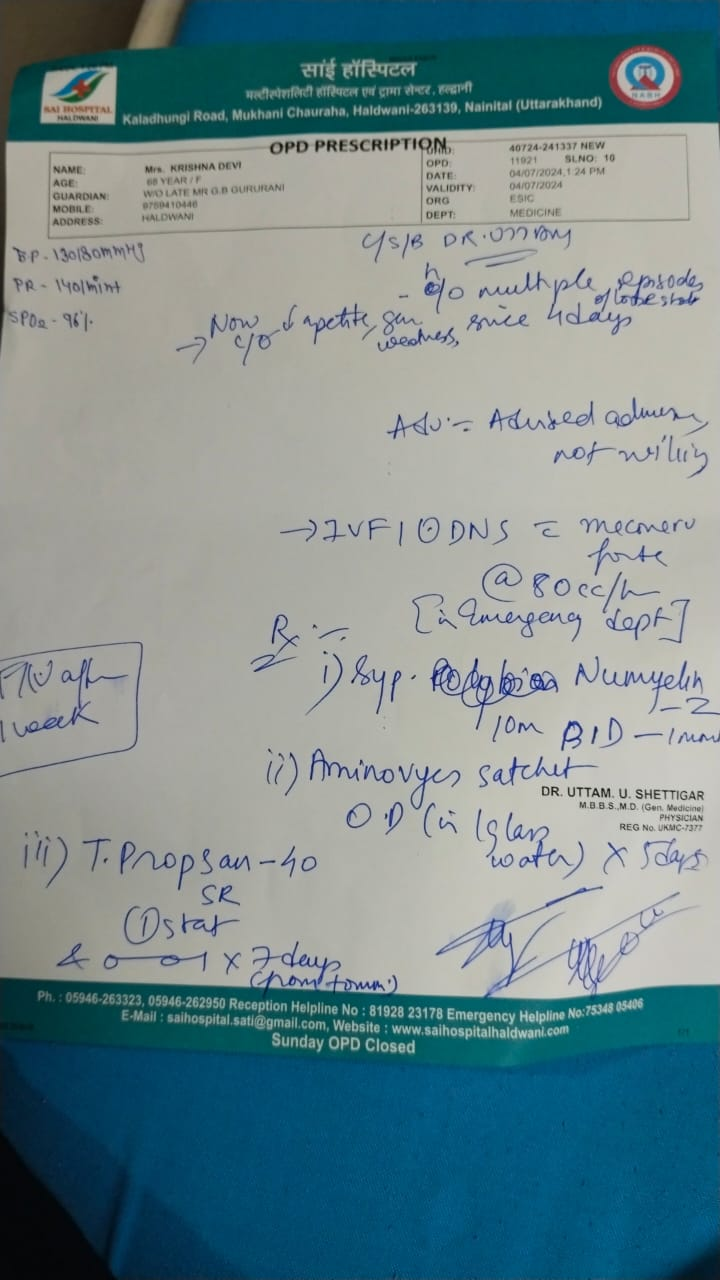 सांई हॉस्पिटल
मल्टीस्पेशलिटी हॉस्पिटल एवं ट्रामा सेन्टर, हल्द्वानी
SAI HOSPITAL
HALDWANI
NABH
Kaladhungi Road, Mukhani Chauraha, Haldwani-263139, Nainital (Uttarakhand)
OPD PRESCRIPTION
NAME: Mrs. KRISHNA DEVI
AGE: 68 YEAR / F
GUARDIAN: W/O LATE MR G.B GURURANI
MOBILE: 9759410446
ADDRESS: HALDWANI
UHID: 40724-241337 NEW
OPD: 11921 SLNO: 10
DATE: 04/07/2024,1:24 PM
VALIDITY: 04/07/2024
ORG ESIC
DEPT: MEDICINE
BP - 130/80mmHg
PR - 140/mint
SPO2 - 96%
C/S/B DR. UTTAM
- h/o multiple episodes
of loose stools
→ Now c/o ↓ apetite, gen weakness, since 4 days
Adv:- Advised
not willing
→ IVF 1 DNS
forte
@ 80cc/h
[in Emergency dept]
Rx :-
i) Syp. Numyelin
10m BID
ii) Aminovyes satchet
OD (in 1 glass
water) x 5 days
iii) T. Propsan-40
SR
① stat
& 0—0—1 x 7 days
(from tomm)
F/U after
1 week
DR. UTTAM. U. SHETTIGAR
M.B.B.S.,M.D. (Gen. Medicine)
PHYSICIAN
REG No. UKMC-7377
Ph. : 05946-263323, 05946-262950 Reception Helpline No : 81928 23178 Emergency Helpline No:75348 05406
E-Mail : saihospital.sati@gmail.com, Website : www.saihospitalhaldwani.com
Sunday OPD Closed